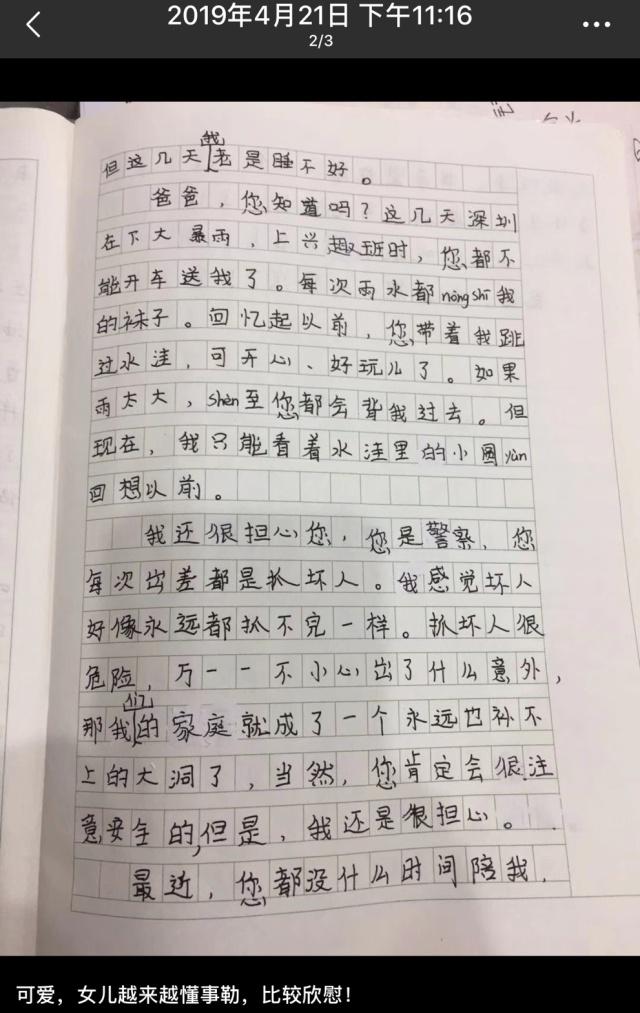 2019年4月21日 下午11:16
2/3
但这几天我老是睡不好。
爸爸，您知道吗？这几天深圳
在下大暴雨，上兴趣班时，您都不
能开车送我了。每次雨水都nòng shī我
的袜子。回忆起以前，您带着我跳
过水洼，可开心、好玩儿了。如果
雨太大，shèn至您都会背我过去。但
现在，我只能看着水洼里的小圆yuán
回想以前。
我还很担心您，您是警察，您
每次出差都是抓坏人。我感觉坏人
好像永远都抓不完一样。抓坏人很
危险，万一一不小心出了什么意外，
那我们的家庭就成了一个永远也补不
上的大洞了，当然，您肯定会很注
意安全的，但是，我还是很担心。
最近，您都没什么时间陪我，
可爱，女儿越来越懂事勒，比较欣慰！